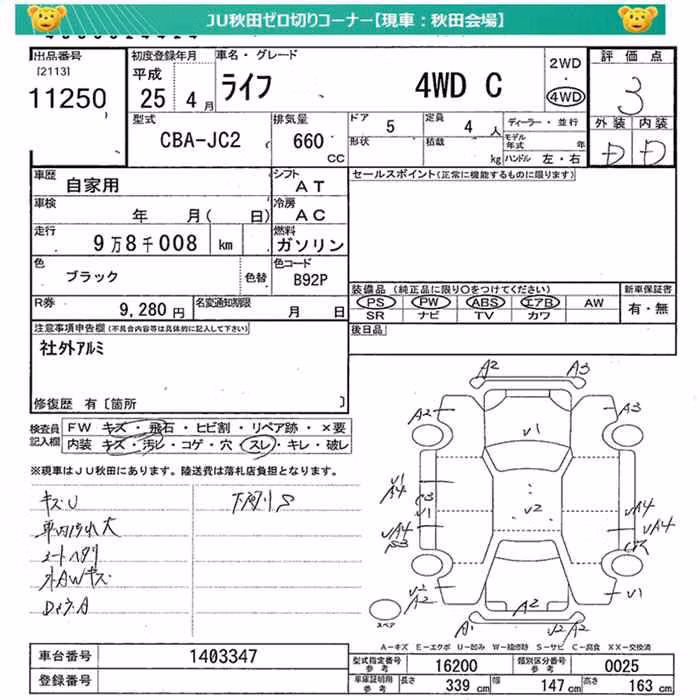 JU秋田ゼロ切りコーナー【現車：秋田会場】
出品番号 初度登録年月 車名・グレード 評価点
[2113] 平成 2WD
11250 25 4月 ライフ 4WD C ・ 3
4WD
型式 排気量 ドア 5 定員 4 人 ディーラー・並行 外装 内装
CBA-JC2 660 CC 形状 積載 kg モデル年式 年 D D
ハンドル 左・右
車歴 自家用 シフト AT セールスポイント(正常に機能するものに限ります)
車検 年 月( 日) 冷房 AC
走行 9万8千008 km 燃料 ガソリン
色 ブラック 色替 色コード B92P
装備品 (純正品に限り○をつけてください) 新車保証書
R券 9,280円 名変通知期限 月 日 PS PW ABS エアB AW 有・無
SR ナビ TV カワ
注意事項申告欄(不具合内容等は具体的に記入して下さい) 後日品
社外アルミ
修復歴 有[箇所 ]
検査員 FW キズ・飛石・ヒビ割・リペア跡・×要
記入欄 内装 キズ・汚レ・コゲ・穴・スレ・キレ・破レ
※現車はJU秋田にあります。陸送費は落札店負担となります。
キズU 下廻りS
車内汚れ大
シートヘタリ
外AWキズ
A2 A3
A2 A3
V1
V1
A4
C3
V1 V2 VA4
VA4 VA4
S3
V2 V1
A2 A2
A1 V2 A2
スペア
A-キズ E-エクボ U-凹み W-補修跡 S-サビ C-腐食 XX-交換済
車台番号 1403347 型式指定番号 参考 16200 類別区分番号 参考 0025
登録番号 車庫証明用 参考 長さ 339 cm 幅 147 cm 高さ 163 cm